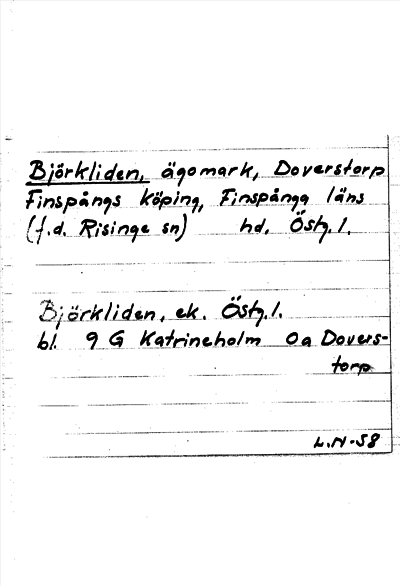 Björkliden, ägomark, Doverstorp
Finspångs köping, Finspånga läns
(f.d. Risinge sn) hd. Östg. l.
Björkliden, ek. Östg. l.
bl. 9 G Katrineholm 0a Dovers-
torp
L.N-58